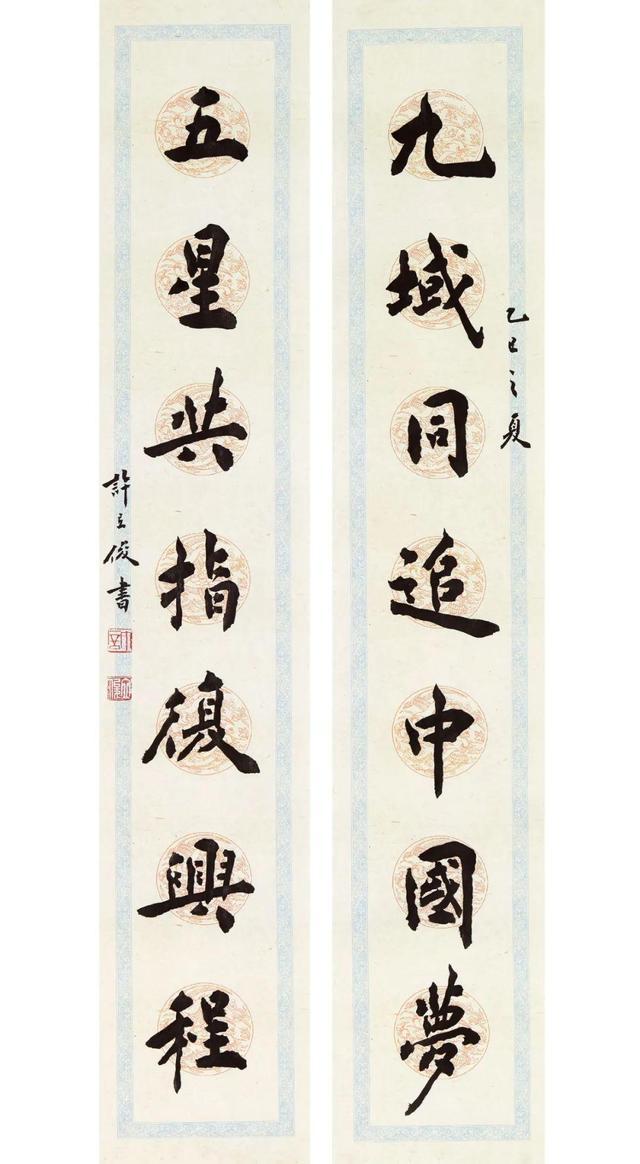 九域同追中國夢
乙巳之夏
五星共指復興程
許立俊書